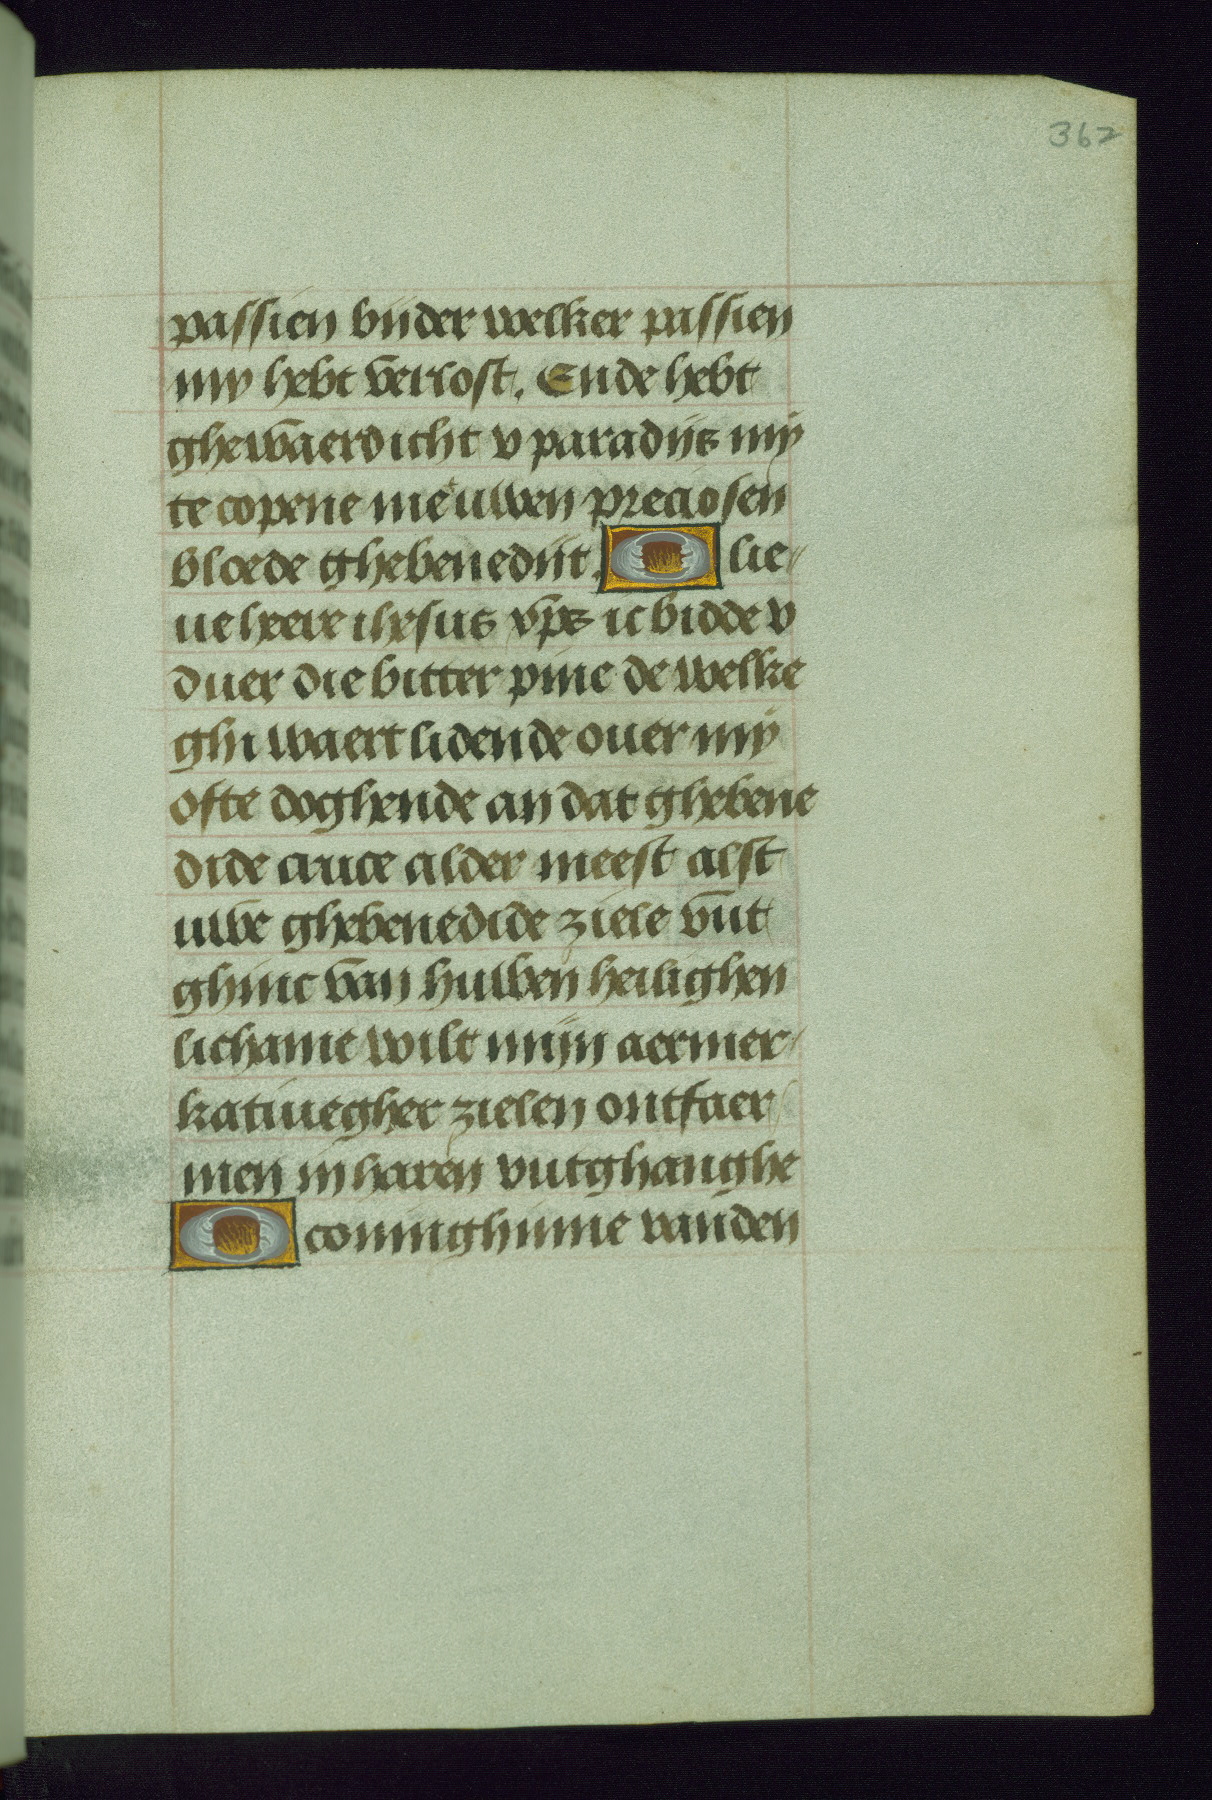 362
passien bijder welker passien
my hebt verlost. Ende hebt
ghewaerdicht v paradijs my
te copene me uwen preciosen
bloede ghebenedijt. O lie-
ue heere ihesus xp̄s ic bidde v
duer die bitter pine de welke
ghi waert lidende ouer my
ofte doghende an dat ghebene
dide cruce alder meest alst
uwe ghebenedide ziele vut
ghinc van huwen heilighen
lichame wilt mijn aermer
katiuegher zielen ontfaer
men in haren vutghanghe
O coninghinne vanden